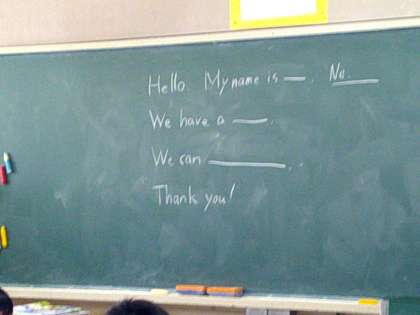 Hello My name is __. No.____
We have a ____.
We can ________.
Thank you!